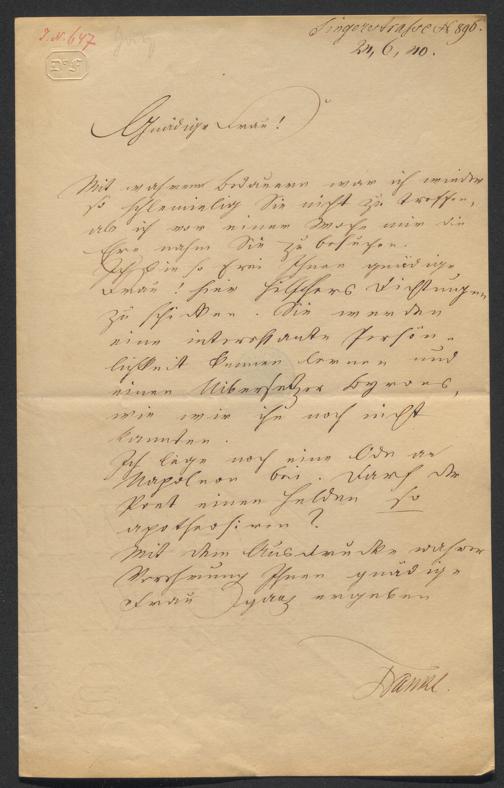 J. N. 647
Singerstrasse N 896.
24, 6, 40.
Gnädige Frau!
Mit wahrem Bedauern war ich wieder
so schlemielig Sie nicht zu treffen,
als ich vor einer Woche mir die
Ehre nahm Sie zu besuchen.
Ich bin so frei Ihnen gnädige
Frau! hier Hilschers Dichtungen
zu schicken. Sie werden
eine interessante Persön-
lichkeit kennen lernen und
einen Uibersetzer Byrons,
wie wir ihn noch nicht
kannten.
Ich lege noch eine Ode an
Napoleon bei. Darf der
Poet einen Helden so
apotheosiren?
Mit dem Ausdrucke wahrer
Verehrung Ihnen gnädige
Frau ganz ergeben